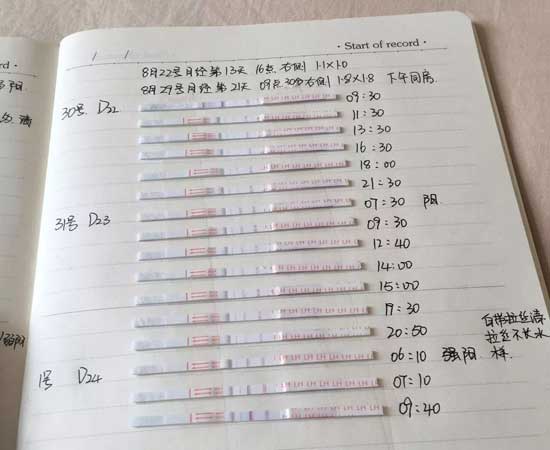 · Start of record ·
8月22号月经第13天 16点 右侧 1.1x1.0
8月29号月经第21天 09点30分右侧 1.8x1.8 下午同房
30号 D22 09:30
11:30
13:30
16:30
18:00
21:30
07:30 阴
31号 D23 09:30
12:40
14:00
15:00
19:30
20:50 白带拉丝清
拉丝不长水
06:10 强阳 样
1号 D24 07:10
09:40